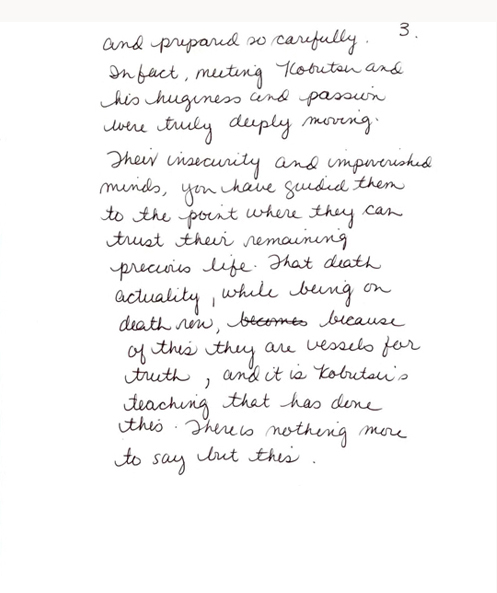 3.
and prepared so carefully.
In fact, meeting Kobutsu and
his hugeness and passion
were truly deeply moving.
Their insecurity and impoverished
minds, you have guided them
to the point where they can
trust their remaining
precious life. That death
actuality, while being on
death row, becomes because
of this they are vessels for
truth, and it is Kobutsu's
teaching that has done
this. There is nothing more
to say but this.